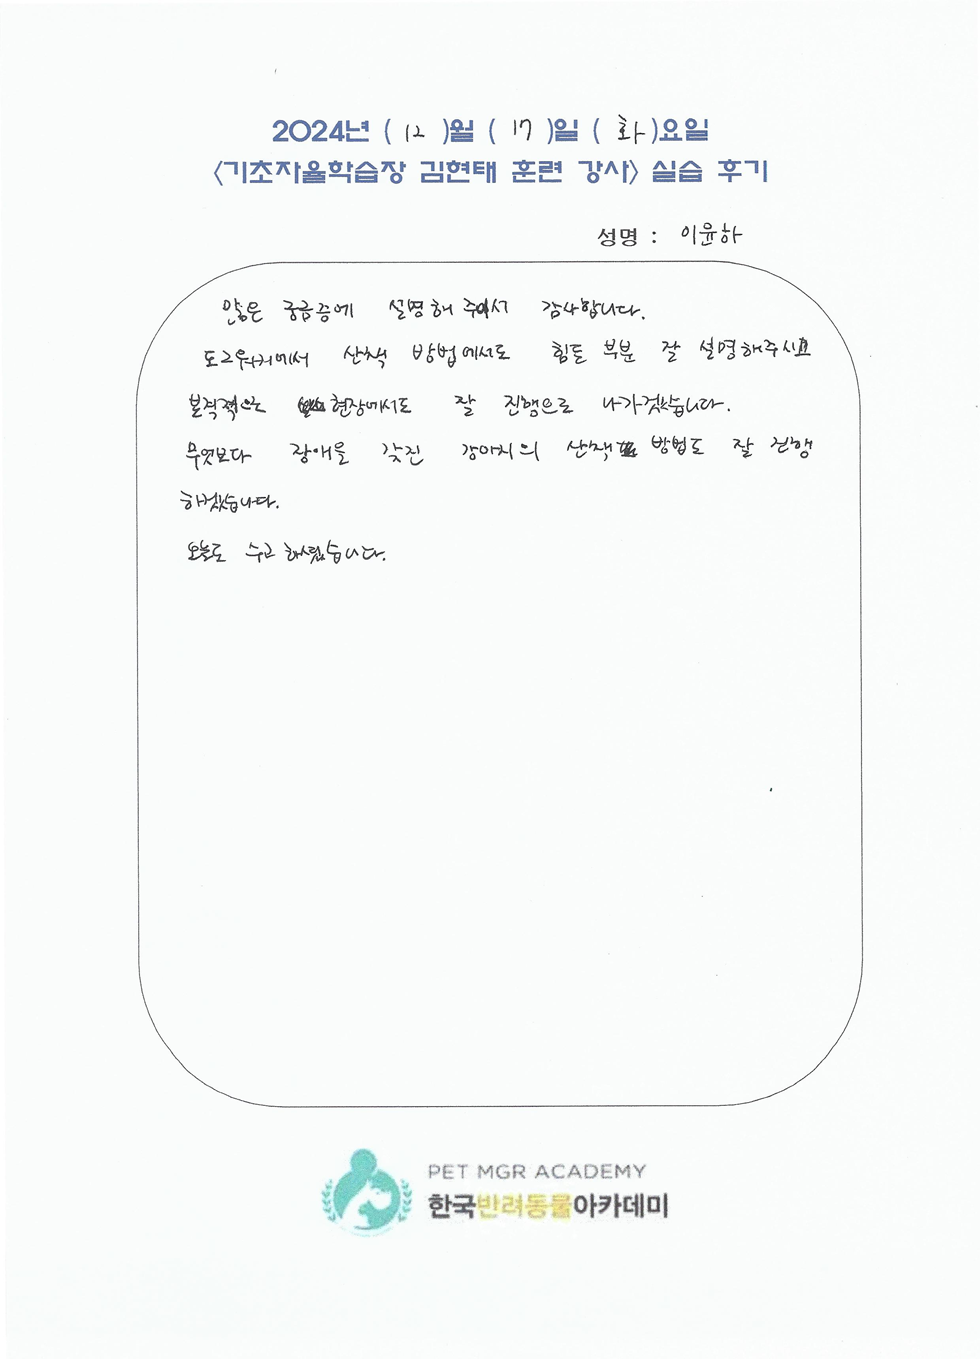 2024년 ( 12 )월 ( 17 )일 ( 화 )요일
<기초자율학습장 김현태 훈련 강사> 실습 후기
성명 : 이윤하
많은 궁금증에 설명해 주셔서 감사합니다.
도그워커에서 산책 방법에서도 힘든 부분 잘 설명해주시고
본격적으로 현장에서도 잘 진행으로 나가겠습니다.
무엇보다 장애을 갖진 강아지의 산책 방법도 잘 진행
하겠습니다.
오늘도 수고하셨습니다.
PET MGR ACADEMY
한국반려동물아카데미